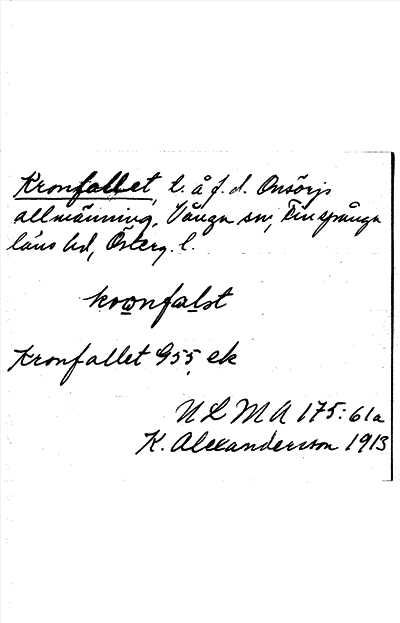 Kronfallet, l. å f. d. Onsörjs
allmänning, Vånga sn, Finspånga
läns hd, Österg. l.
kronfalst
Kronfallet G55 ek
ULMA 175:61a
K. Alexanderson 1913